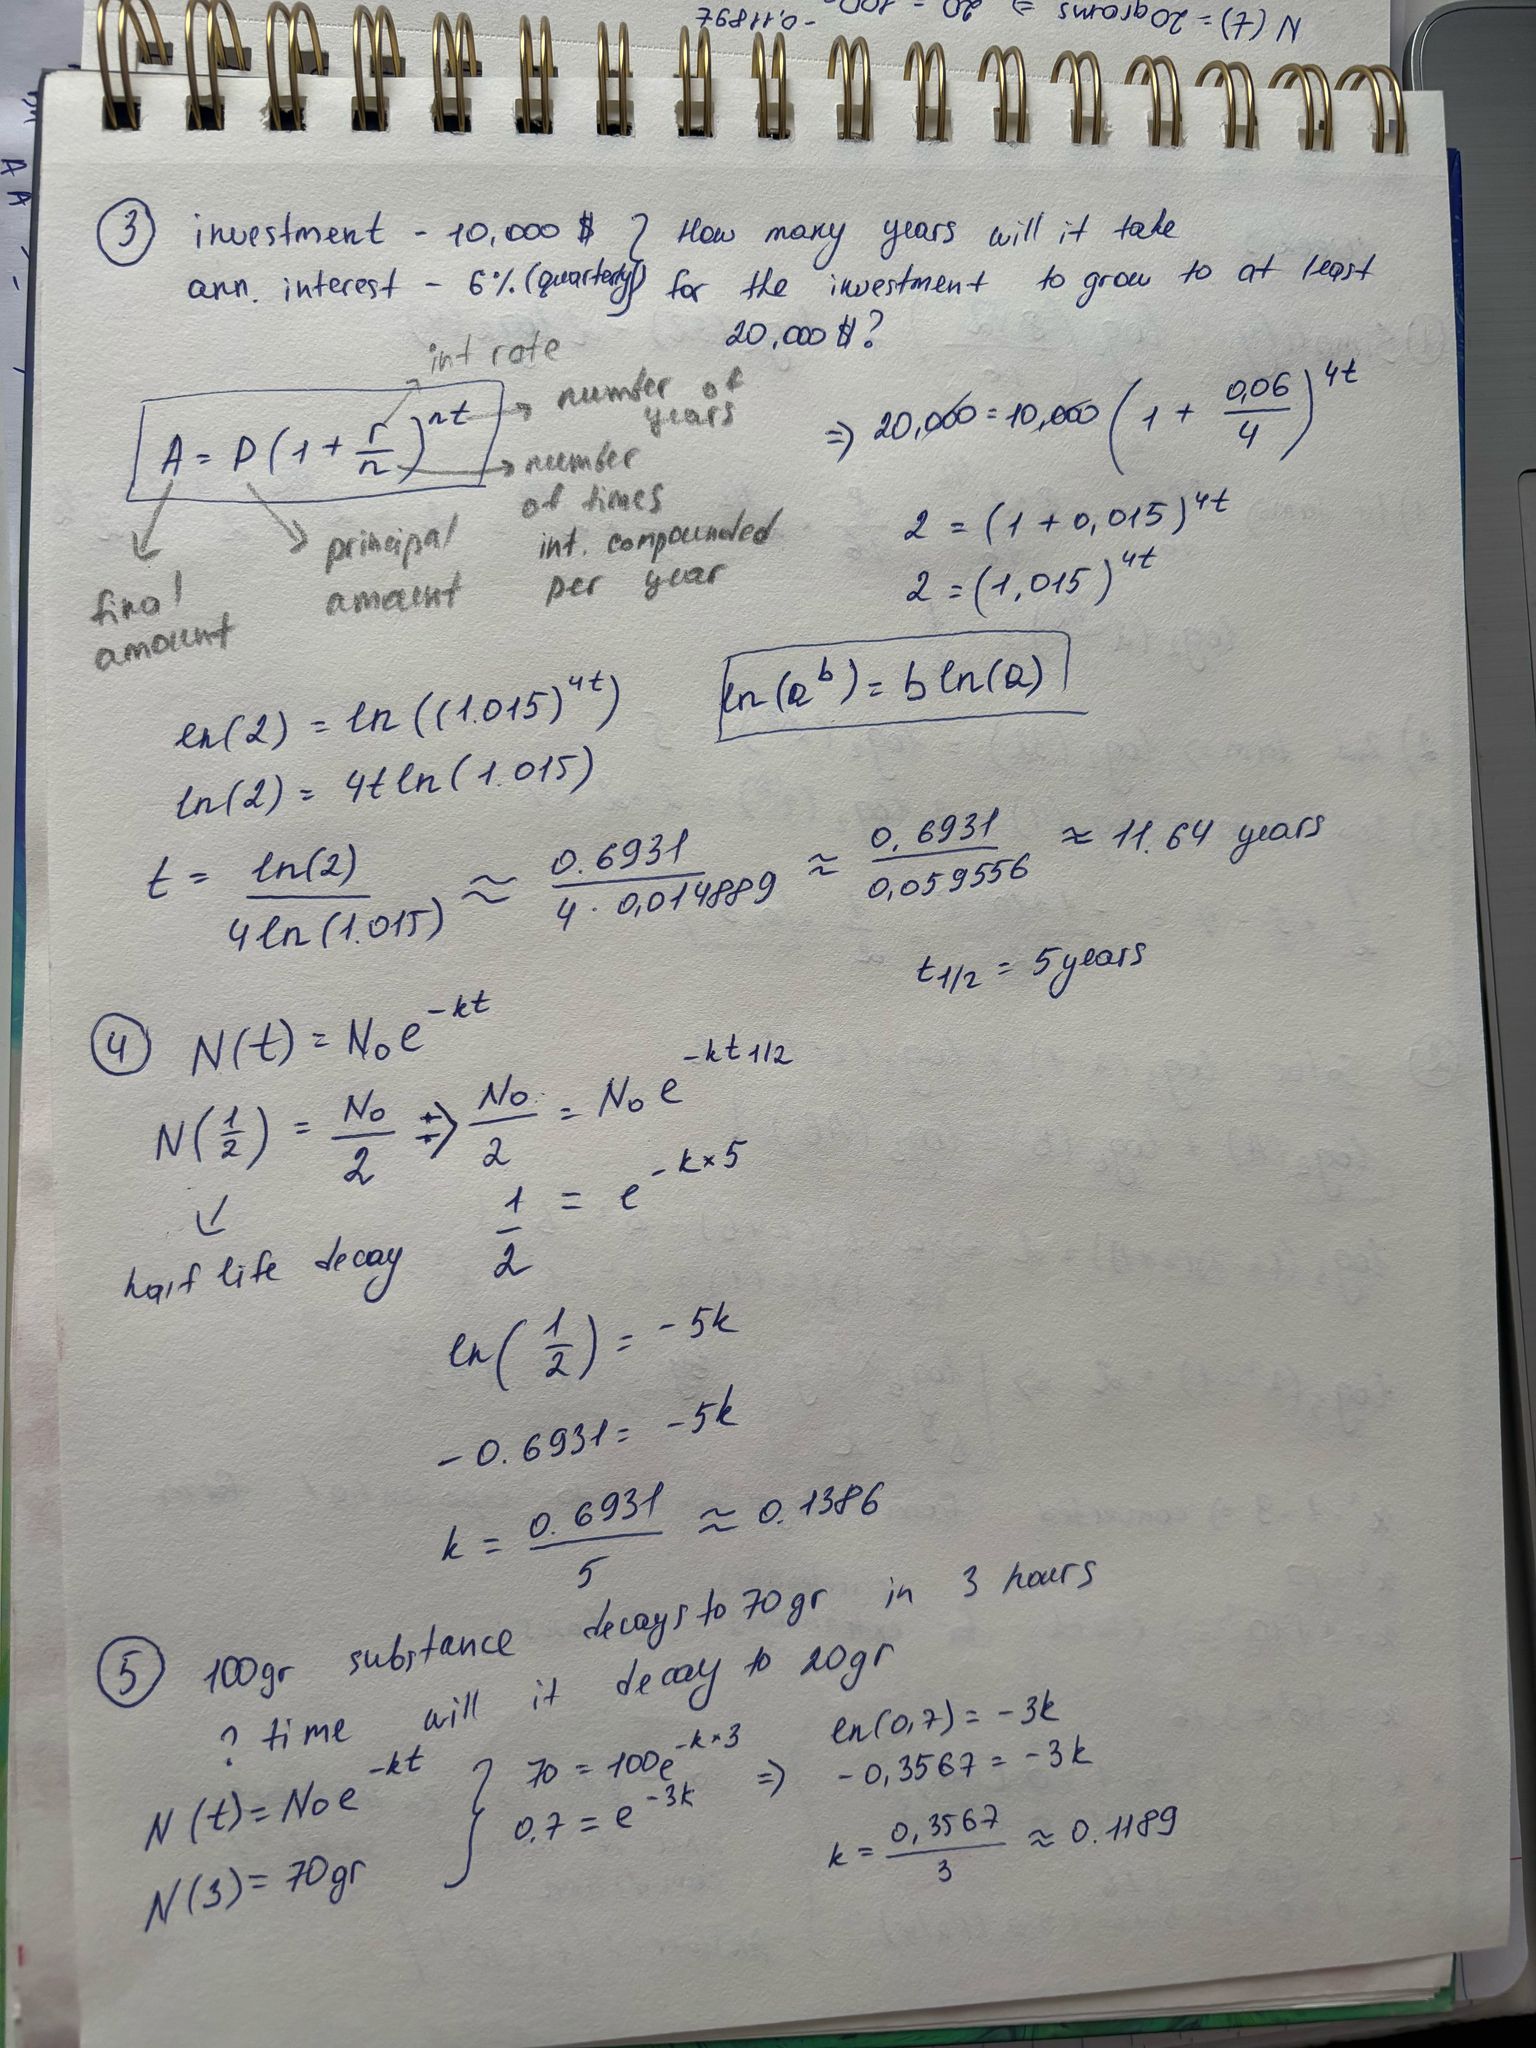 N(7) = 20grams => 20 = 100
-0.11897
③ investment - 10,000 $ } How many years will it take
ann. interest - 6% (quarterly) for the investment to grow to at least
20,000 $?
int rate
A = P(1 + r/n)^nt
number of years
number of times int. compounded per year
principal amount
final amount
=> 20,000 = 10,000 (1 + 0,06/4)^4t
2 = (1 + 0,015)^4t
2 = (1,015)^4t
ln(2) = ln((1.015)^4t)
ln(a^b) = b ln(a)
ln(2) = 4t ln(1.015)
t = ln(2)/4 ln(1.015) ≈ 0.6931/4 · 0,014889 ≈ 0,6931/0,059556 ≈ 11.64 years
t1/2 = 5 years
④ N(t) = N0 e^-kt
N(1/2) = N0/2 => N0/2 = N0 e^-kt1/2
half life decay
1/2 = e^-k×5
ln(1/2) = -5k
-0.6931 = -5k
k = 0.6931/5 ≈ 0.1386
⑤ 100gr substance decays to 70gr in 3 hours
? time will it decay to 20gr
N(t) = N0 e^-kt
N(3) = 70gr
70 = 100e^-k×3
0.7 = e^-3k
=> ln(0,7) = -3k
-0,3567 = -3k
k = 0,3567/3 ≈ 0.1189